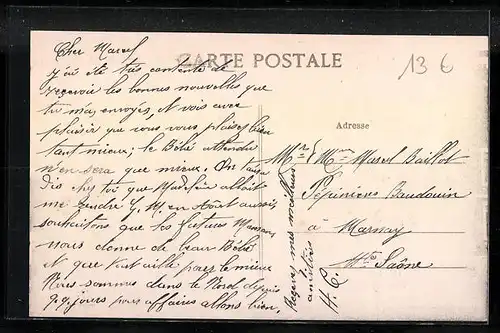 CARTE POSTALE
136
Cher Marcel
j'ai été très contente de
recevoir les bonnes nouvelles que
tu m'as envoyés, je vois avec
plaisir que vous vous plaisez bien
tant mieux; le Bébé attendu
n'en sera que mieux. On
Dis chez toi que allait
me rendre en Août aussi
souhaitons que les futures Mamans
nous donne de beau Bébé
et que tout aille pour le mieux
Nous sommes dans le Nord depuis
jours pour affaires allons bien,
Adresse
Mr & Mme Marcel Baillot
Pépinières Baudouin
à Marnay
Hte Saône
Reçevez mes meilleures
amitiés
H. C.